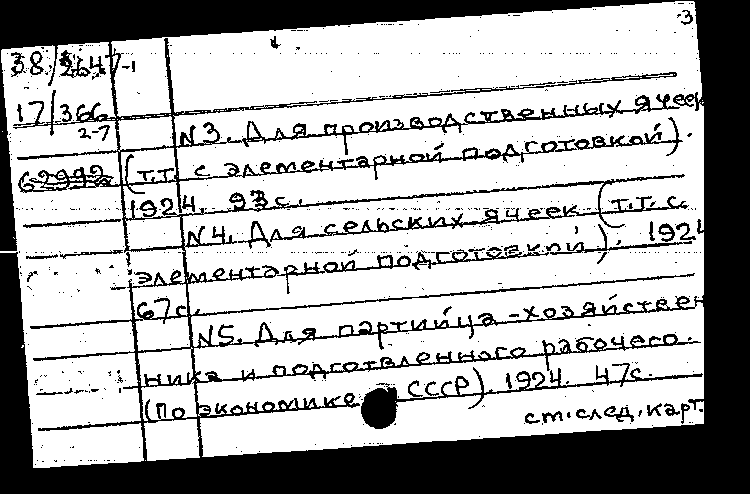 3
38/2647-1
17/366
2-7
N3. Для производственных ячеек
62992 (т.т. с элементарной подготовкой).
1924. 93с.
N4. Для сельских ячеек (т.т. с
элементарной подготовкой). 1924
67с.
N5. Для партийца-хозяйствен
ника и подготвленного рабочего.
(по экономике СССР). 1924. 47с.
см.след.карт.